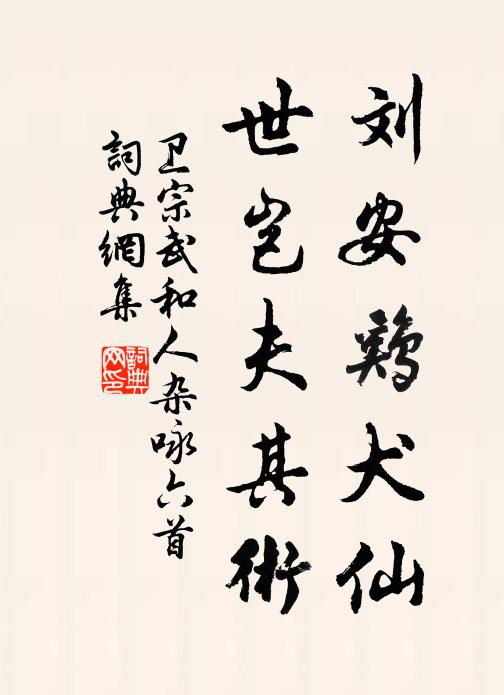 刘安鷄犬仙
世岂夫其術
卫宗武和人杂咏六首
詞典網集
詞典网印